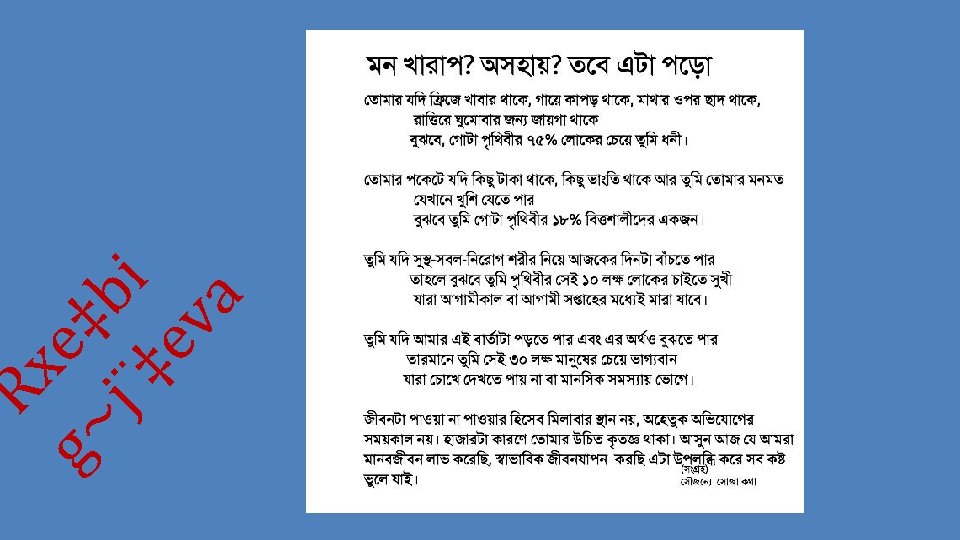 Rxe‡bi
g~j¨‡eva
মন খারাপ? অসহায়? তবে এটা পড়ো
তোমার যদি ফ্রিজে খাবার থাকে, গায়ে কাপড় থাকে, মাথার ওপর ছাদ থাকে,
রাত্তিরে ঘুমোবার জন্য জায়গা থাকে
বুঝবে, গোটা পৃথিবীর ৭৫% লোকের চেয়ে তুমি ধনী।
তোমার পকেটে যদি কিছু টাকা থাকে, কিছু ভাংতি থাকে আর তুমি তোমার মনমত
যেখানে খুশি যেতে পার
বুঝবে তুমি গোটা পৃথিবীর ১৮% বিত্তশালীদের একজন।
তুমি যদি সুস্থ-সবল-নিরোগ শরীর নিয়ে আজকের দিনটা বাঁচতে পার
তাহলে বুঝবে তুমি পৃথিবীর সেই ১০ লক্ষ লোকের চাইতে সুখী
যারা আগামীকাল বা আগামী সপ্তাহের মধ্যেই মারা যাবে।
তুমি যদি আমার এই বার্তাটা পড়তে পার এবং এর অর্থও বুঝতে পার
তারমানে তুমি সেই ৩০ লক্ষ মানুষের চেয়ে ভাগ্যবান
যারা চোখে দেখতে পায় না বা মানসিক সমস্যায় ভোগে।
জীবনটা পাওয়া না পাওয়ার হিসেব মিলাবার স্থান নয়, অহেতুক অভিযোগের
সময়কাল নয়। হাজারটা কারণে তোমার উচিত কৃতজ্ঞ থাকা। আসুন আজ যে আমরা
মানবজীবন লাভ করেছি, স্বাভাবিক জীবনযাপন করছি এটা উপলব্ধি করে সব কষ্ট
ভুলে যাই।
(সংগ্রহ)
সৌজন্যে